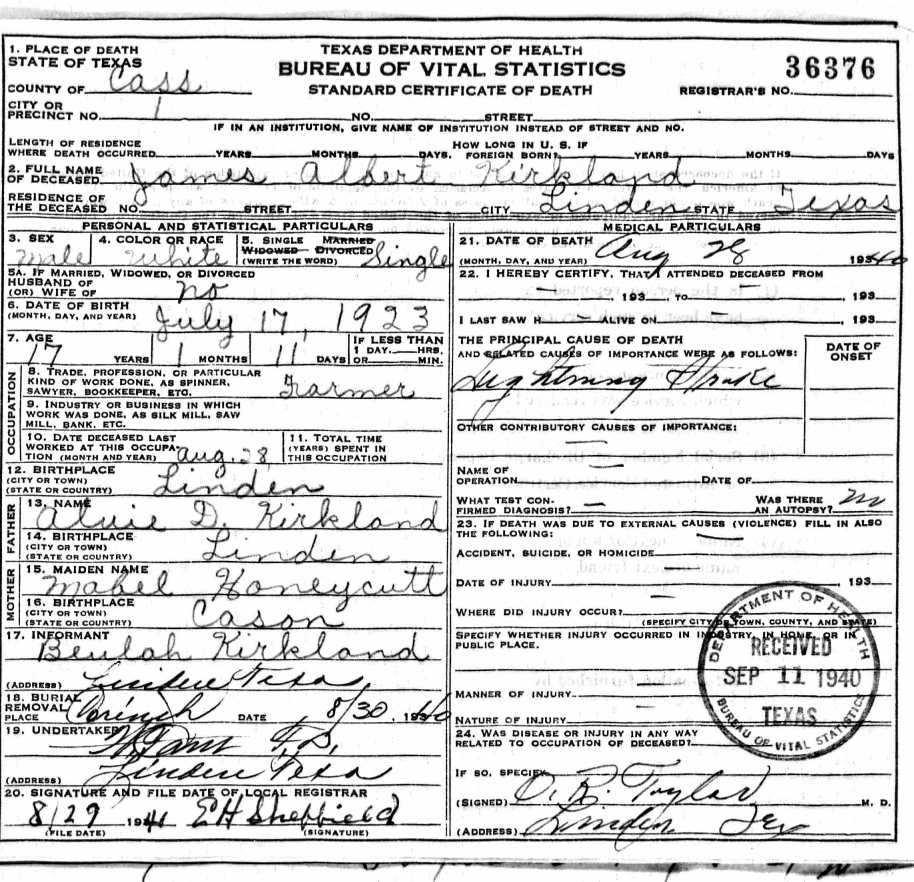 TEXAS DEPARTMENT OF HEALTH
BUREAU OF VITAL STATISTICS
STANDARD CERTIFICATE OF DEATH
36376
REGISTRAR'S NO.
1. PLACE OF DEATH
STATE OF TEXAS
COUNTY OF Cass
CITY OR PRECINCT NO. 1 NO. STREET
IF IN AN INSTITUTION, GIVE NAME OF INSTITUTION INSTEAD OF STREET AND NO.
LENGTH OF RESIDENCE WHERE DEATH OCCURRED YEARS MONTHS DAYS. HOW LONG IN U. S. IF FOREIGN BORN? YEARS MONTHS DAYS
2. FULL NAME OF DECEASED James Albert Kirkland
RESIDENCE OF THE DECEASED NO. STREET CITY Linden STATE Texas
PERSONAL AND STATISTICAL PARTICULARS
3. SEX Male 4. COLOR OR RACE White 5. SINGLE MARRIED WIDOWED DIVORCED (WRITE THE WORD) Single
5A. IF MARRIED, WIDOWED, OR DIVORCED
HUSBAND OF (OR) WIFE OF no
6. DATE OF BIRTH (MONTH, DAY, AND YEAR) July 17, 1923
7. AGE 17 YEARS 1 MONTHS 11 DAYS IF LESS THAN 1 DAY HRS. OR MIN.
OCCUPATION
8. TRADE, PROFESSION, OR PARTICULAR KIND OF WORK DONE, AS SPINNER, SAWYER, BOOKKEEPER, ETC. Farmer
9. INDUSTRY OR BUSINESS IN WHICH WORK WAS DONE, AS SILK MILL, SAW MILL, BANK. ETC.
10. DATE DECEASED LAST WORKED AT THIS OCCUPATION (MONTH AND YEAR) Aug. 28, 11. TOTAL TIME (YEARS) SPENT IN THIS OCCUPATION
12. BIRTHPLACE (CITY OR TOWN) (STATE OR COUNTRY) Linden
FATHER
13. NAME Alvie D. Kirkland
14. BIRTHPLACE (CITY OR TOWN) (STATE OR COUNTRY) Linden
MOTHER
15. MAIDEN NAME Mabel Honeycutt
16. BIRTHPLACE (CITY OR TOWN) (STATE OR COUNTRY) Cason
17. INFORMANT Beulah Kirkland
(ADDRESS) Linden Texa
18. BURIAL REMOVAL PLACE Corinth DATE 8/30, 1940
19. UNDERTAKER
(ADDRESS) Linden Texa
20. SIGNATURE AND FILE DATE OF LOCAL REGISTRAR
8/29 1941 EH Sheffield
(FILE DATE) (SIGNATURE)
MEDICAL PARTICULARS
21. DATE OF DEATH (MONTH, DAY, AND YEAR) Aug 28 1940
22. I HEREBY CERTIFY, THAT I ATTENDED DECEASED FROM
— , 193 , TO — , 193
I LAST SAW H — ALIVE ON — , 193
THE PRINCIPAL CAUSE OF DEATH AND RELATED CAUSES OF IMPORTANCE WERE AS FOLLOWS: DATE OF ONSET
Lightning Stroke
OTHER CONTRIBUTORY CAUSES OF IMPORTANCE:
—
NAME OF OPERATION — DATE OF
WHAT TEST CONFIRMED DIAGNOSIS? — WAS THERE AN AUTOPSY? no
23. IF DEATH WAS DUE TO EXTERNAL CAUSES (VIOLENCE) FILL IN ALSO THE FOLLOWING:
ACCIDENT, SUICIDE, OR HOMICIDE
DATE OF INJURY , 193
WHERE DID INJURY OCCUR?
(SPECIFY CITY OR TOWN, COUNTY, AND STATE)
SPECIFY WHETHER INJURY OCCURRED IN INDUSTRY, IN HOME, OR IN PUBLIC PLACE.
MANNER OF INJURY
NATURE OF INJURY
24. WAS DISEASE OR INJURY IN ANY WAY RELATED TO OCCUPATION OF DECEASED?
IF SO, SPECIFY
(SIGNED) O. R. Taylor M. D.
(ADDRESS) Linden Tex
DEPARTMENT OF HEALTH
RECEIVED
SEP 11 1940
TEXAS
BUREAU OF VITAL STATISTICS